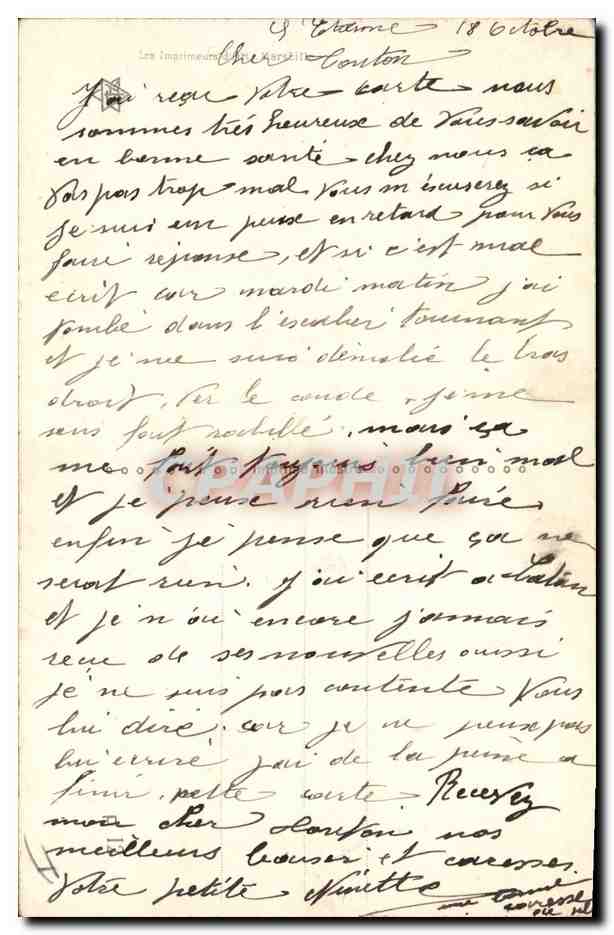 St Etienne 18 Octobre
Les Imprimeurs Marseill
Cher Tonton
J'ai reçu votre carte nous
sommes très heureux de vous savoir
en bonne santé chez nous ça
vas pas trop mal vous m'éscuserez si
je sui un peux en retard pour vous
faire réponse, et si c'est mal
ecrit car mardi matin j'ai
tombé dans l'escalier tournant
et je me suis démolié le bras
droit, ver le coude, je me
suis fait rabillé, mais ça
me fait toujours bien mal
CPAPHIL
et je peux rien faire
enfin je pense que ça ne
serat rien. J'ai ecrit a
et je n'ai encore jammais
reçu de ses nouvelles aussi
je ne suis pas contente Vous
lui diré car je ne peux pas
lui écriré j'ai de la peine a
finir cette carte Recevez
mon cher Tonton nos
meilleurs baiser et caresses
Votre petite Ninette
une
caresse